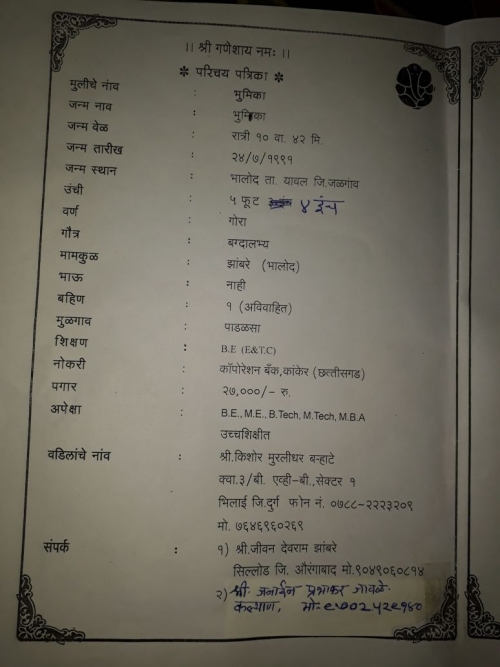 ।। श्री गणेशाय नमः ।।
✻ परिचय पत्रिका ✻
मुलीचे नांव : भुमिका
जन्म नाव : भुमिका
जन्म वेळ : रात्री १० वा. ४२ मि.
जन्म तारीख : २४/७/१९९१
जन्म स्थान : भालोद ता. यावल जि.जळगाव
उंची : ५ फूट ४ इंच
वर्ण : गोरा
गौत्र : बग्दालभ्य
मामकुळ : झांबरे (भालोद)
भाऊ : नाही
बहिण : १ (अविवाहित)
मुळगाव : पाडळसा
शिक्षण : B.E (E&T.C)
नोकरी : कॉपोरेशन बँक,कांकेर (छत्तीसगड)
पगार : २७,०००/- रु.
अपेक्षा : B.E., M.E., B.Tech, M.Tech, M.B.A
उच्चशिक्षीत
वडिलांचे नांव : श्री.किशोर मुरलीधर बऱ्हाटे
क्वा.३/बी. एव्ही-बी.,सेक्टर १
भिलाई जि.दुर्ग फोन नं. ०७८८-२२२३२०९
मो. ७६४६९६०२६९
संपर्क : १) श्री.जीवन देवराम झांबरे
सिल्लोड जि. औरंगाबाद मो.९०४९०६०८१४
२) श्री. जनार्दन प्रभाकर जावळे.
कल्याण, मो:-